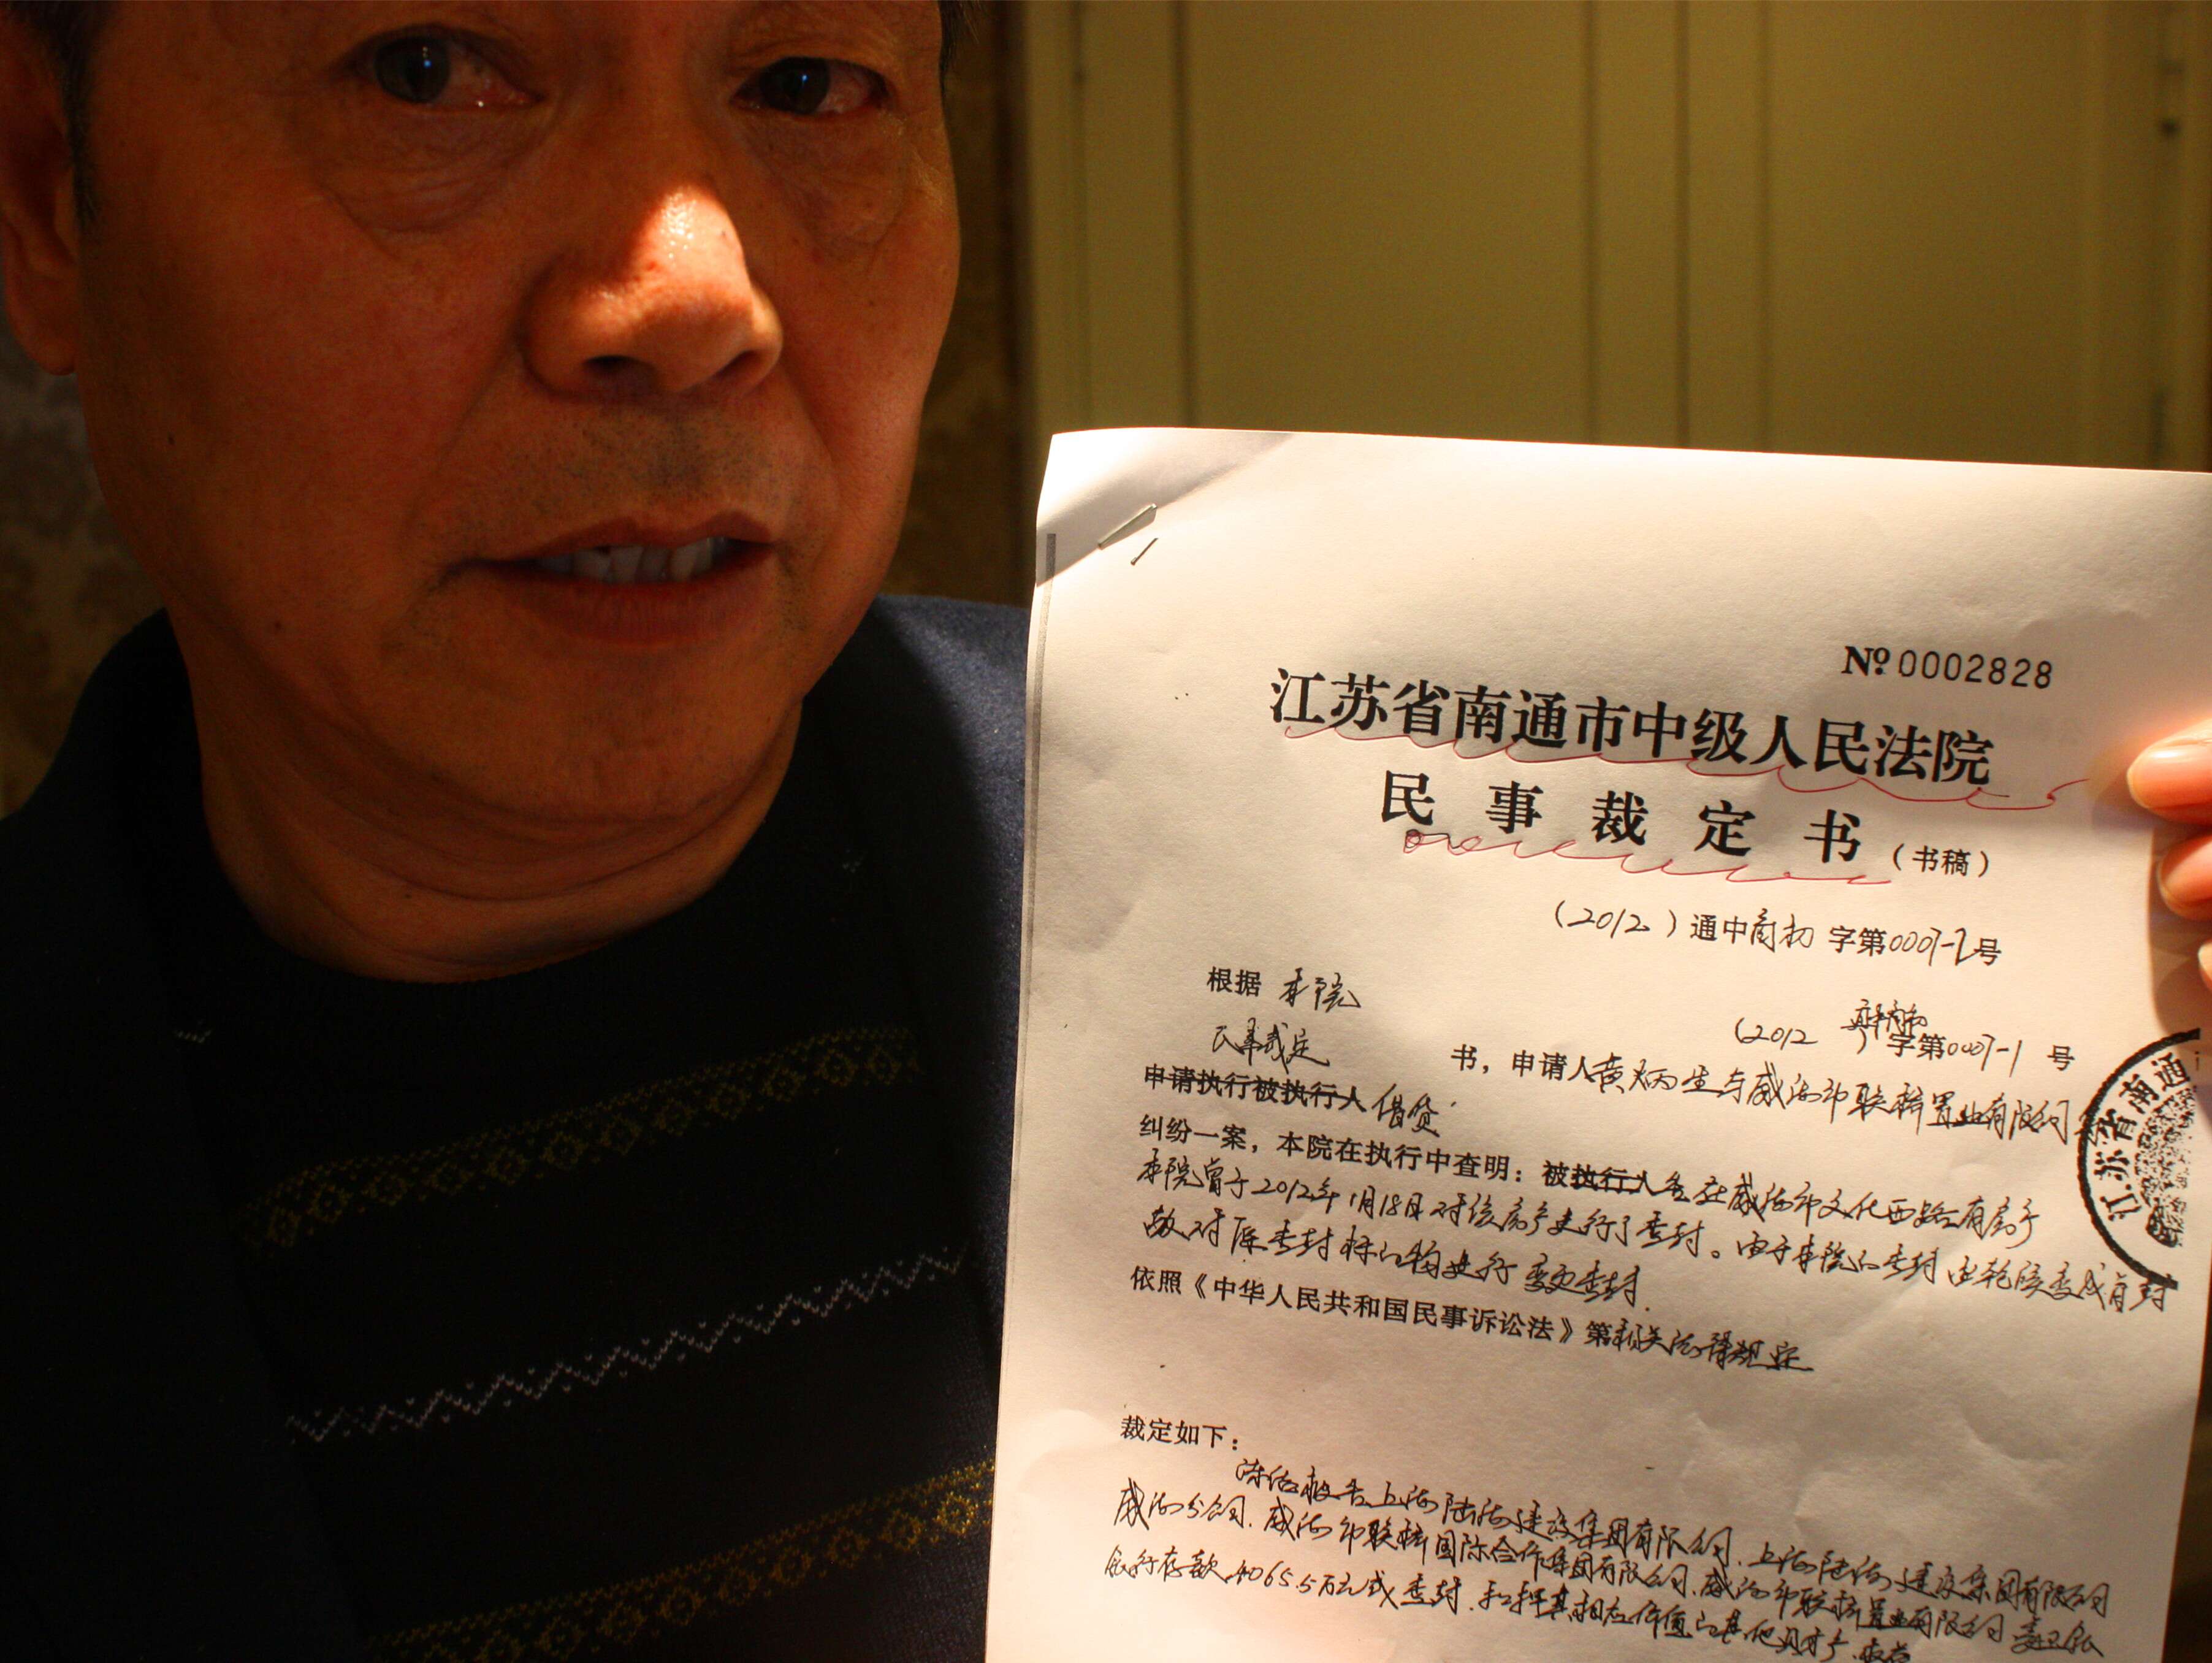 № 0002828
江苏省南通市中级人民法院
民事裁定书（书稿）
（2012）通中商初字第0007-2号
根据 本院
（2012 字第0007-1号
民事裁定 书，申请人黄炳生与威海市联桥置业有限公司
申请执行被执行人 借贷
纠纷一案，本院在执行中查明：被执行人 在威海市文化西路有房产
本院曾于2012年1月18日对该房产进行了查封。由于本院的查封由轮候变成首封
故对原查封标的物进行变更查封.
依照《中华人民共和国民事诉讼法》第相关法律规定
裁定如下：
冻结被告上海陆海建设集团有限公司、上海陆海建设集团有限公司
威海分公司、威海市联桥国际合作集团有限公司、威海市联桥置业有限公司
银行存款4065.5万元或查封、扣押其相应价值的其他财产
江苏省南通